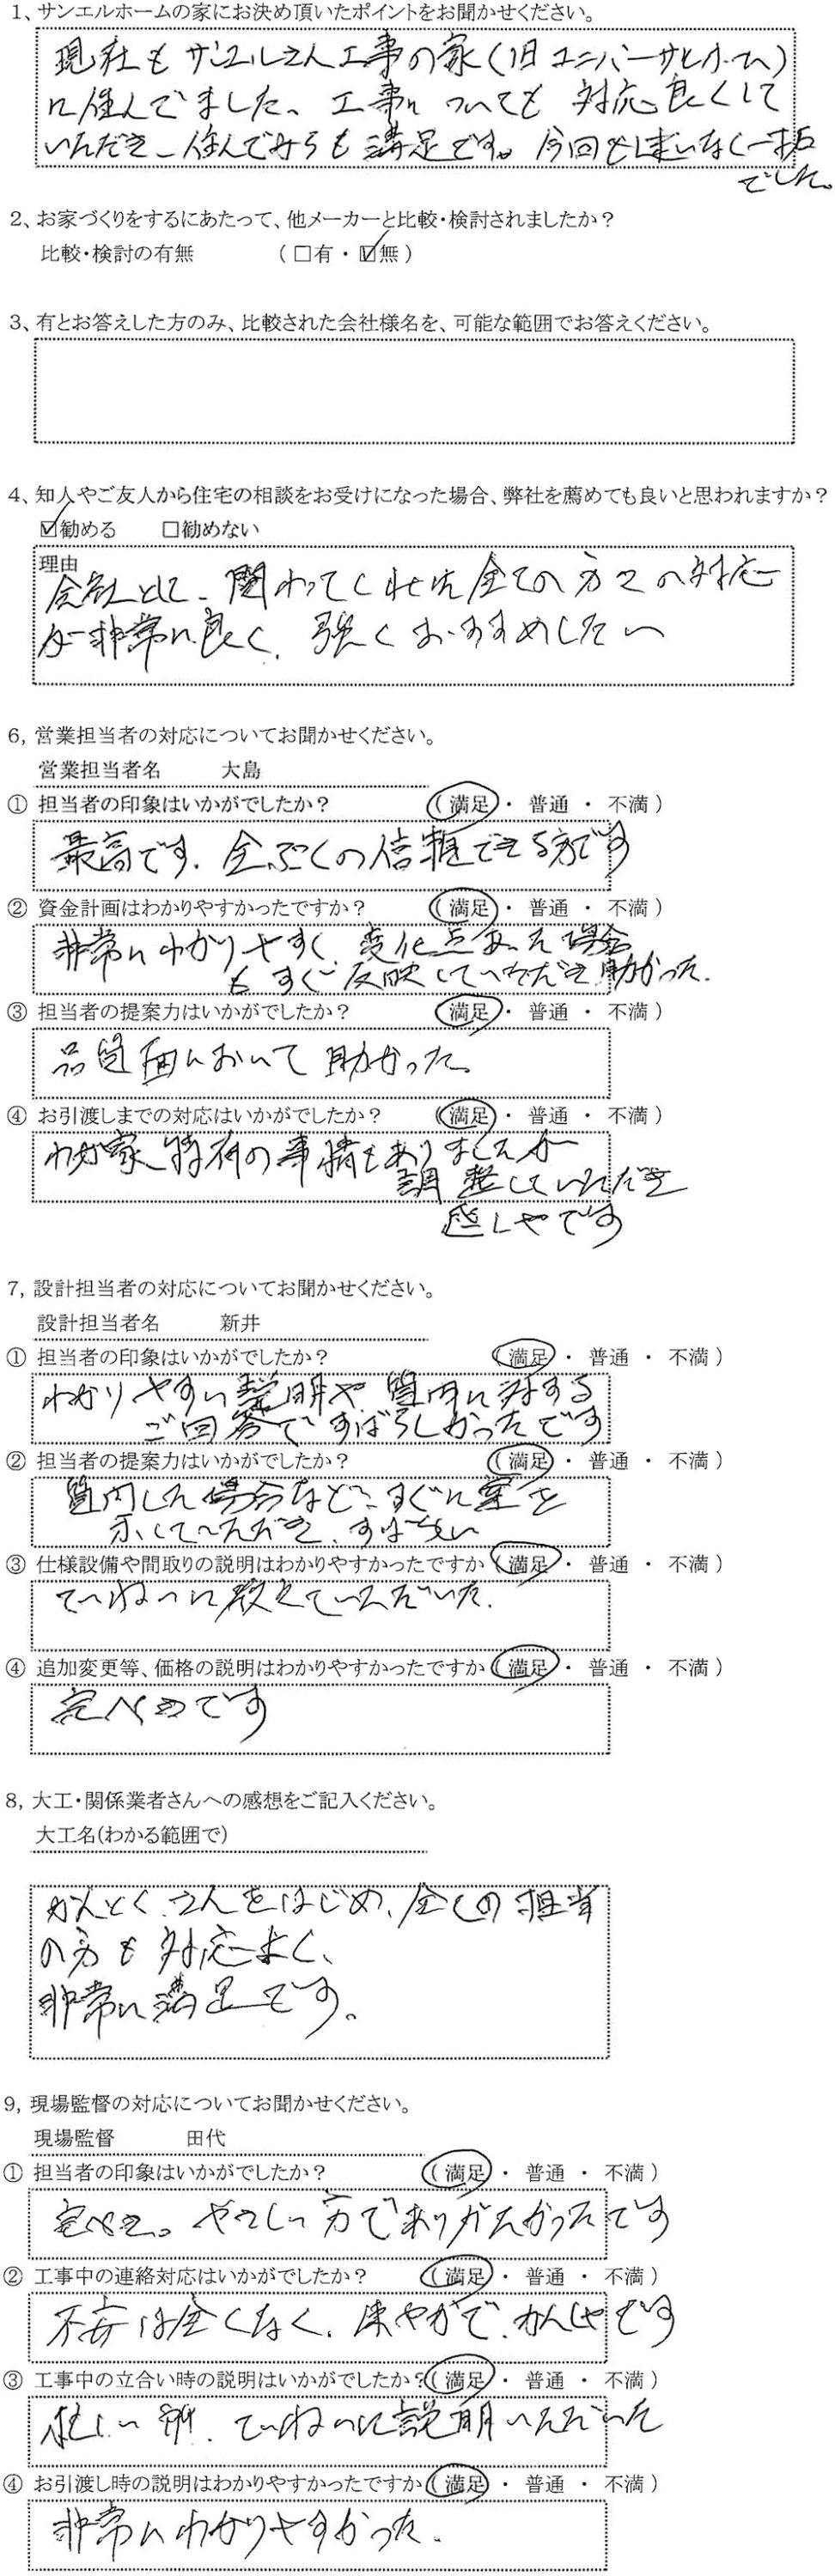 1、サンエルホームの家にお決め頂いたポイントをお聞かせください。
現在も サンエルさん工事の家(旧ユニバーサルホーム)
に住んでました。工事についても 対応良くして
いただき、住んでみても満足です。今回も迷いなく一択
でした。
2、お家づくりをするにあたって、他メーカーと比較・検討されましたか？
比較・検討の有無 ( □有・☑無 )
3、有とお答えした方のみ、比較された会社様名を、可能な範囲でお答えください。
4、知人やご友人から住宅の相談をお受けになった場合、弊社を薦めても良いと思われますか？
☑勧める □勧めない
理由
会社として、関わってくれた全ての方々の対応
が非常に良く、強くおすすめしたい
6, 営業担当者の対応についてお聞かせください。
営業担当者名 大島
① 担当者の印象はいかがでしたか？ ( 満足 ・ 普通 ・ 不満 )
最高です。全ぷくの信頼できる方です
② 資金計画はわかりやすかったですか？ ( 満足 ・ 普通 ・ 不満 )
非常にわかりやすく、変化点あった場合
もすぐ反映していただき助かった.
③ 担当者の提案力はいかがでしたか？ ( 満足 ・ 普通 ・ 不満 )
品質面において助かった。
④ お引渡しまでの対応はいかがでしたか？ ( 満足 ・ 普通 ・ 不満 )
わが家特有の事情もありましたが
調整していただき
感しゃです
7, 設計担当者の対応についてお聞かせください。
設計担当者名 新井
① 担当者の印象はいかがでしたか？ ( 満足 ・ 普通 ・ 不満 )
わかりやすい説明や質問に対する
ご回答ですばらしかったです
② 担当者の提案力はいかがでしたか？ ( 満足 ・ 普通 ・ 不満 )
質問した場合など、すぐに案を
示していただき、すばらしい
③ 仕様設備や間取りの説明はわかりやすかったですか ( 満足 ・ 普通 ・ 不満 )
ていねいに教えていただいた.
④ 追加変更等、価格の説明はわかりやすかったですか ( 満足 ・ 普通 ・ 不満 )
完ぺきです
8, 大工・関係業者さんへの感想をご記入ください。
大工名(わかる範囲で)
かんとくさんをはじめ、全ての担当
の方も対応よく、
非常に満足です。
9, 現場監督の対応についてお聞かせください。
現場監督 田代
① 担当者の印象はいかがでしたか？ ( 満足 ・ 普通 ・ 不満 )
完ぺき。やさしい方でありがたかったです
② 工事中の連絡対応はいかがでしたか？ ( 満足 ・ 普通 ・ 不満 )
不安は全くなく、速やかで、かんしゃです
③ 工事中の立合い時の説明はいかがでしたか？( 満足 ・ 普通 ・ 不満 )
忙しい所、ていねいに説明いただいた
④ お引渡し時の説明はわかりやすかったですか ( 満足 ・ 普通 ・ 不満 )
非常にわかりやすかった.